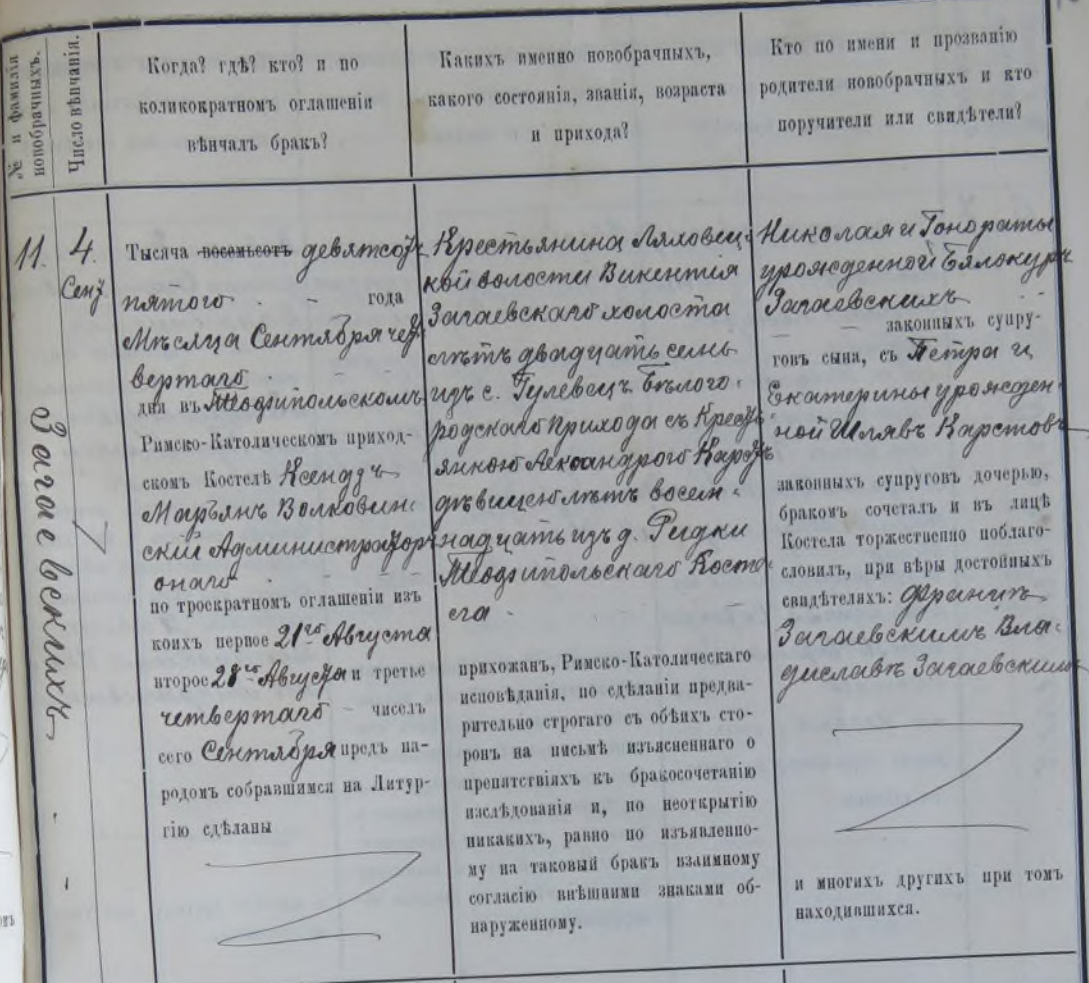 № и фамилія
новобрачныхъ.
Число вѣнчанія.
Когда? гдѣ? кто? и по
коликократномъ оглашеніи
вѣнчалъ бракъ?
Какихъ именно новобрачныхъ,
какого состоянія, званія, возраста
и прихода?
Кто по имени и прозванію
родители новобрачныхъ и кто
поручители или свидѣтели?
11.
Загаевскихъ
4.
Сент
Тысяча восемьсотъ девятсот
пятого года
Мѣсяца Сентября чет
вертаго
дня въ Теофипольскомъ
Римско-Католическомъ приход-
скомъ Костелѣ Ксендзъ
Марьянъ Волковин
скій Администратор
онаго
по троекратномъ оглашеніи изъ
коихъ первое 21го Августа
второе 28го Августа и третье
четвертаго чиселъ
сего Сентября предъ на-
родомъ собравшимся на Литур-
гію сдѣланы
Крестьянина Ляховец
кой волости Викентія
Загаевскаго холоста
лѣтъ двадцать семь
изъ с. Гулевецъ Бѣлого
родскаго прихода съ Крест
янкою Александрою Карст
дѣвицею лѣтъ восем
надцать изъ д. Ридки
Теофипольскаго Косте
ла
прихожанъ, Римско-Католическаго
исповѣданія, по сдѣланіи предва-
рительно строгаго съ обѣихъ сто-
ронъ на письмѣ изъясненнаго о
препятствіяхъ къ бракосочетанію
изслѣдованія и, по неоткрытію
никакихъ, равно по изъявленно-
му на таковый бракъ взаимному
согласію внѣшними знаками об-
наруженному.
Николая и Гонораты
урожденной Бялокуръ
Загаевскихъ
законныхъ супру-
говъ сына, съ Петра и
Екатерины урожден
ной Шлявъ Карстовъ
законныхъ супруговъ дочерью,
бракомъ сочеталъ и въ лицѣ
Костела торжественно поблаго-
словилъ, при вѣры достойныхъ
свидѣтеляхъ: Францъ
Загаевскимъ Вла
диславъ Загаевскимъ
и многихъ другихъ при томъ
находившихся.